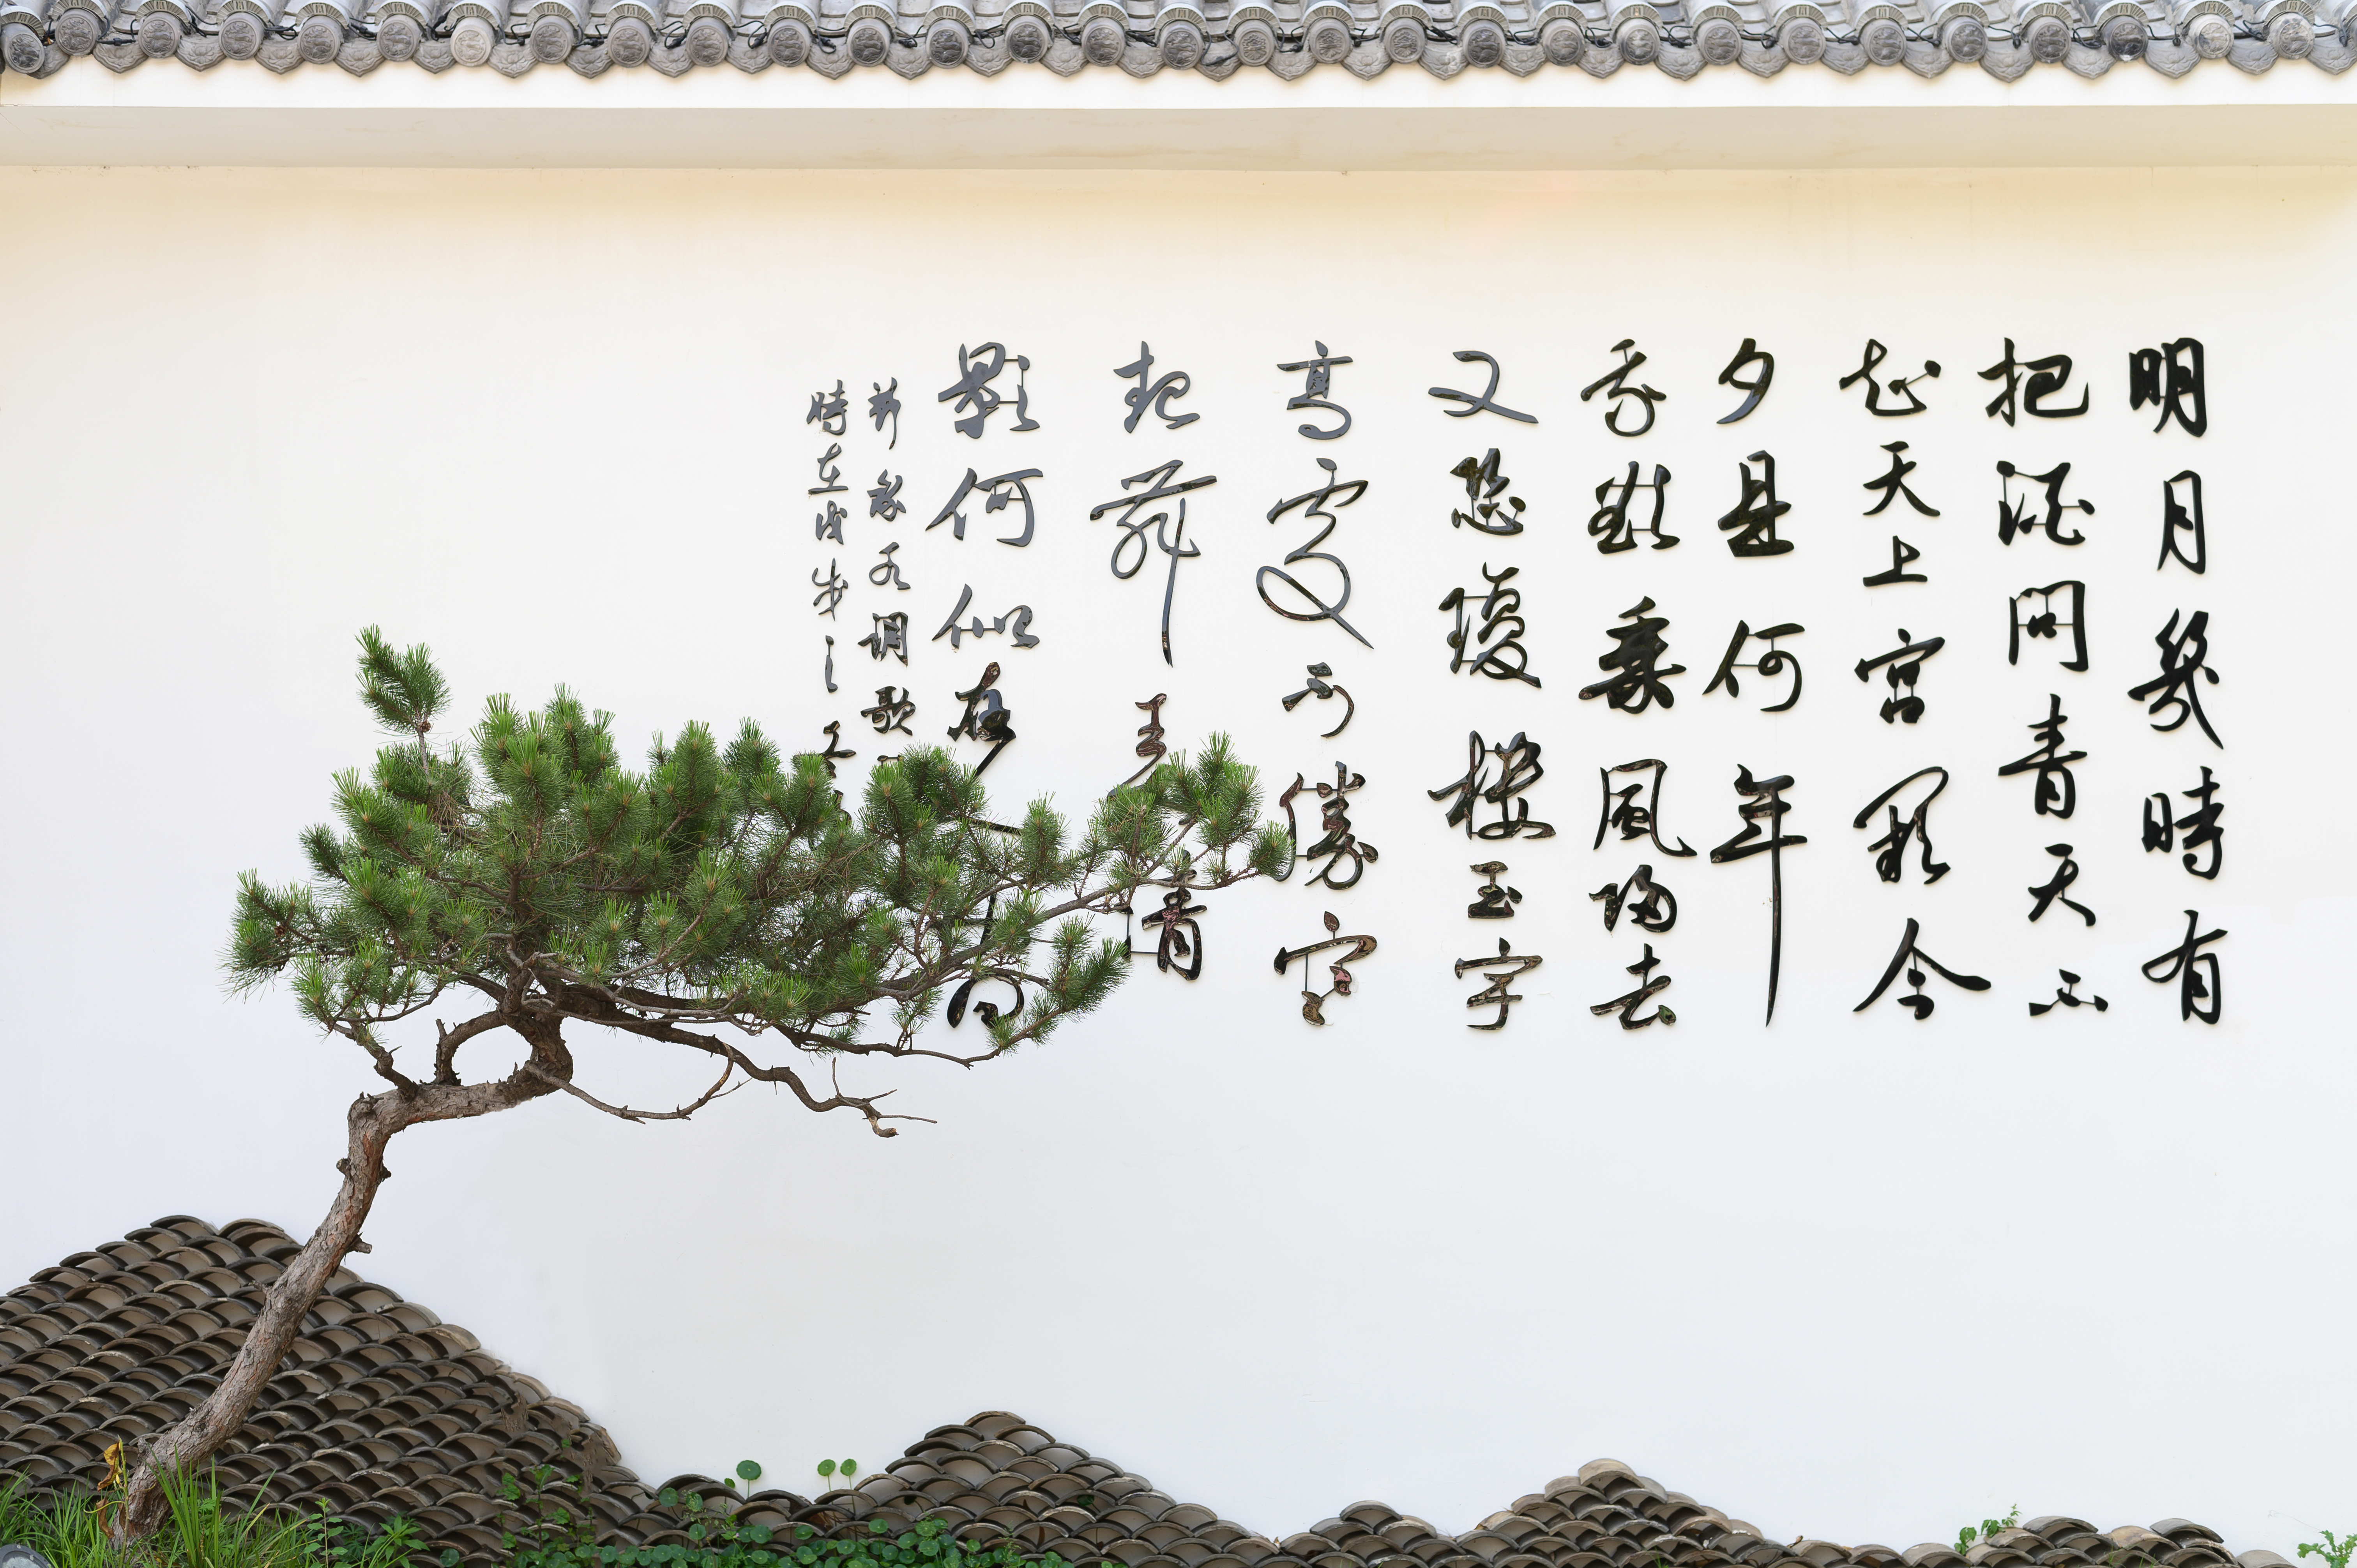 明月幾時有
把酒問青天不
知天上宮闕今
夕是何年
我欲乘風歸去
又恐瓊樓玉宇
高處不勝寒
起舞弄清
影何似在間
蘇水调歌
時在戊戌之冬